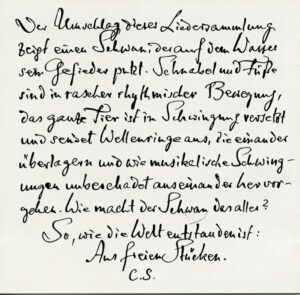 Der Umschlag dieser Liedersammlung
zeigt einen Schwan, der auf dem Wasser
sein Gefieder putzt. Schnabel und Füße
sind in rascher rhythmischer Bewegung,
das ganze Tier ist in Schwingung versetzt
und sendet Wellenringe aus, die einander
überlagern und wie musikalische Schwing-
ungen unbeschadet auseinander hervor-
gehen. Wie macht der Schwan das alles?
So, wie die Welt entstanden ist:
Aus freien Stücken.
C.S.